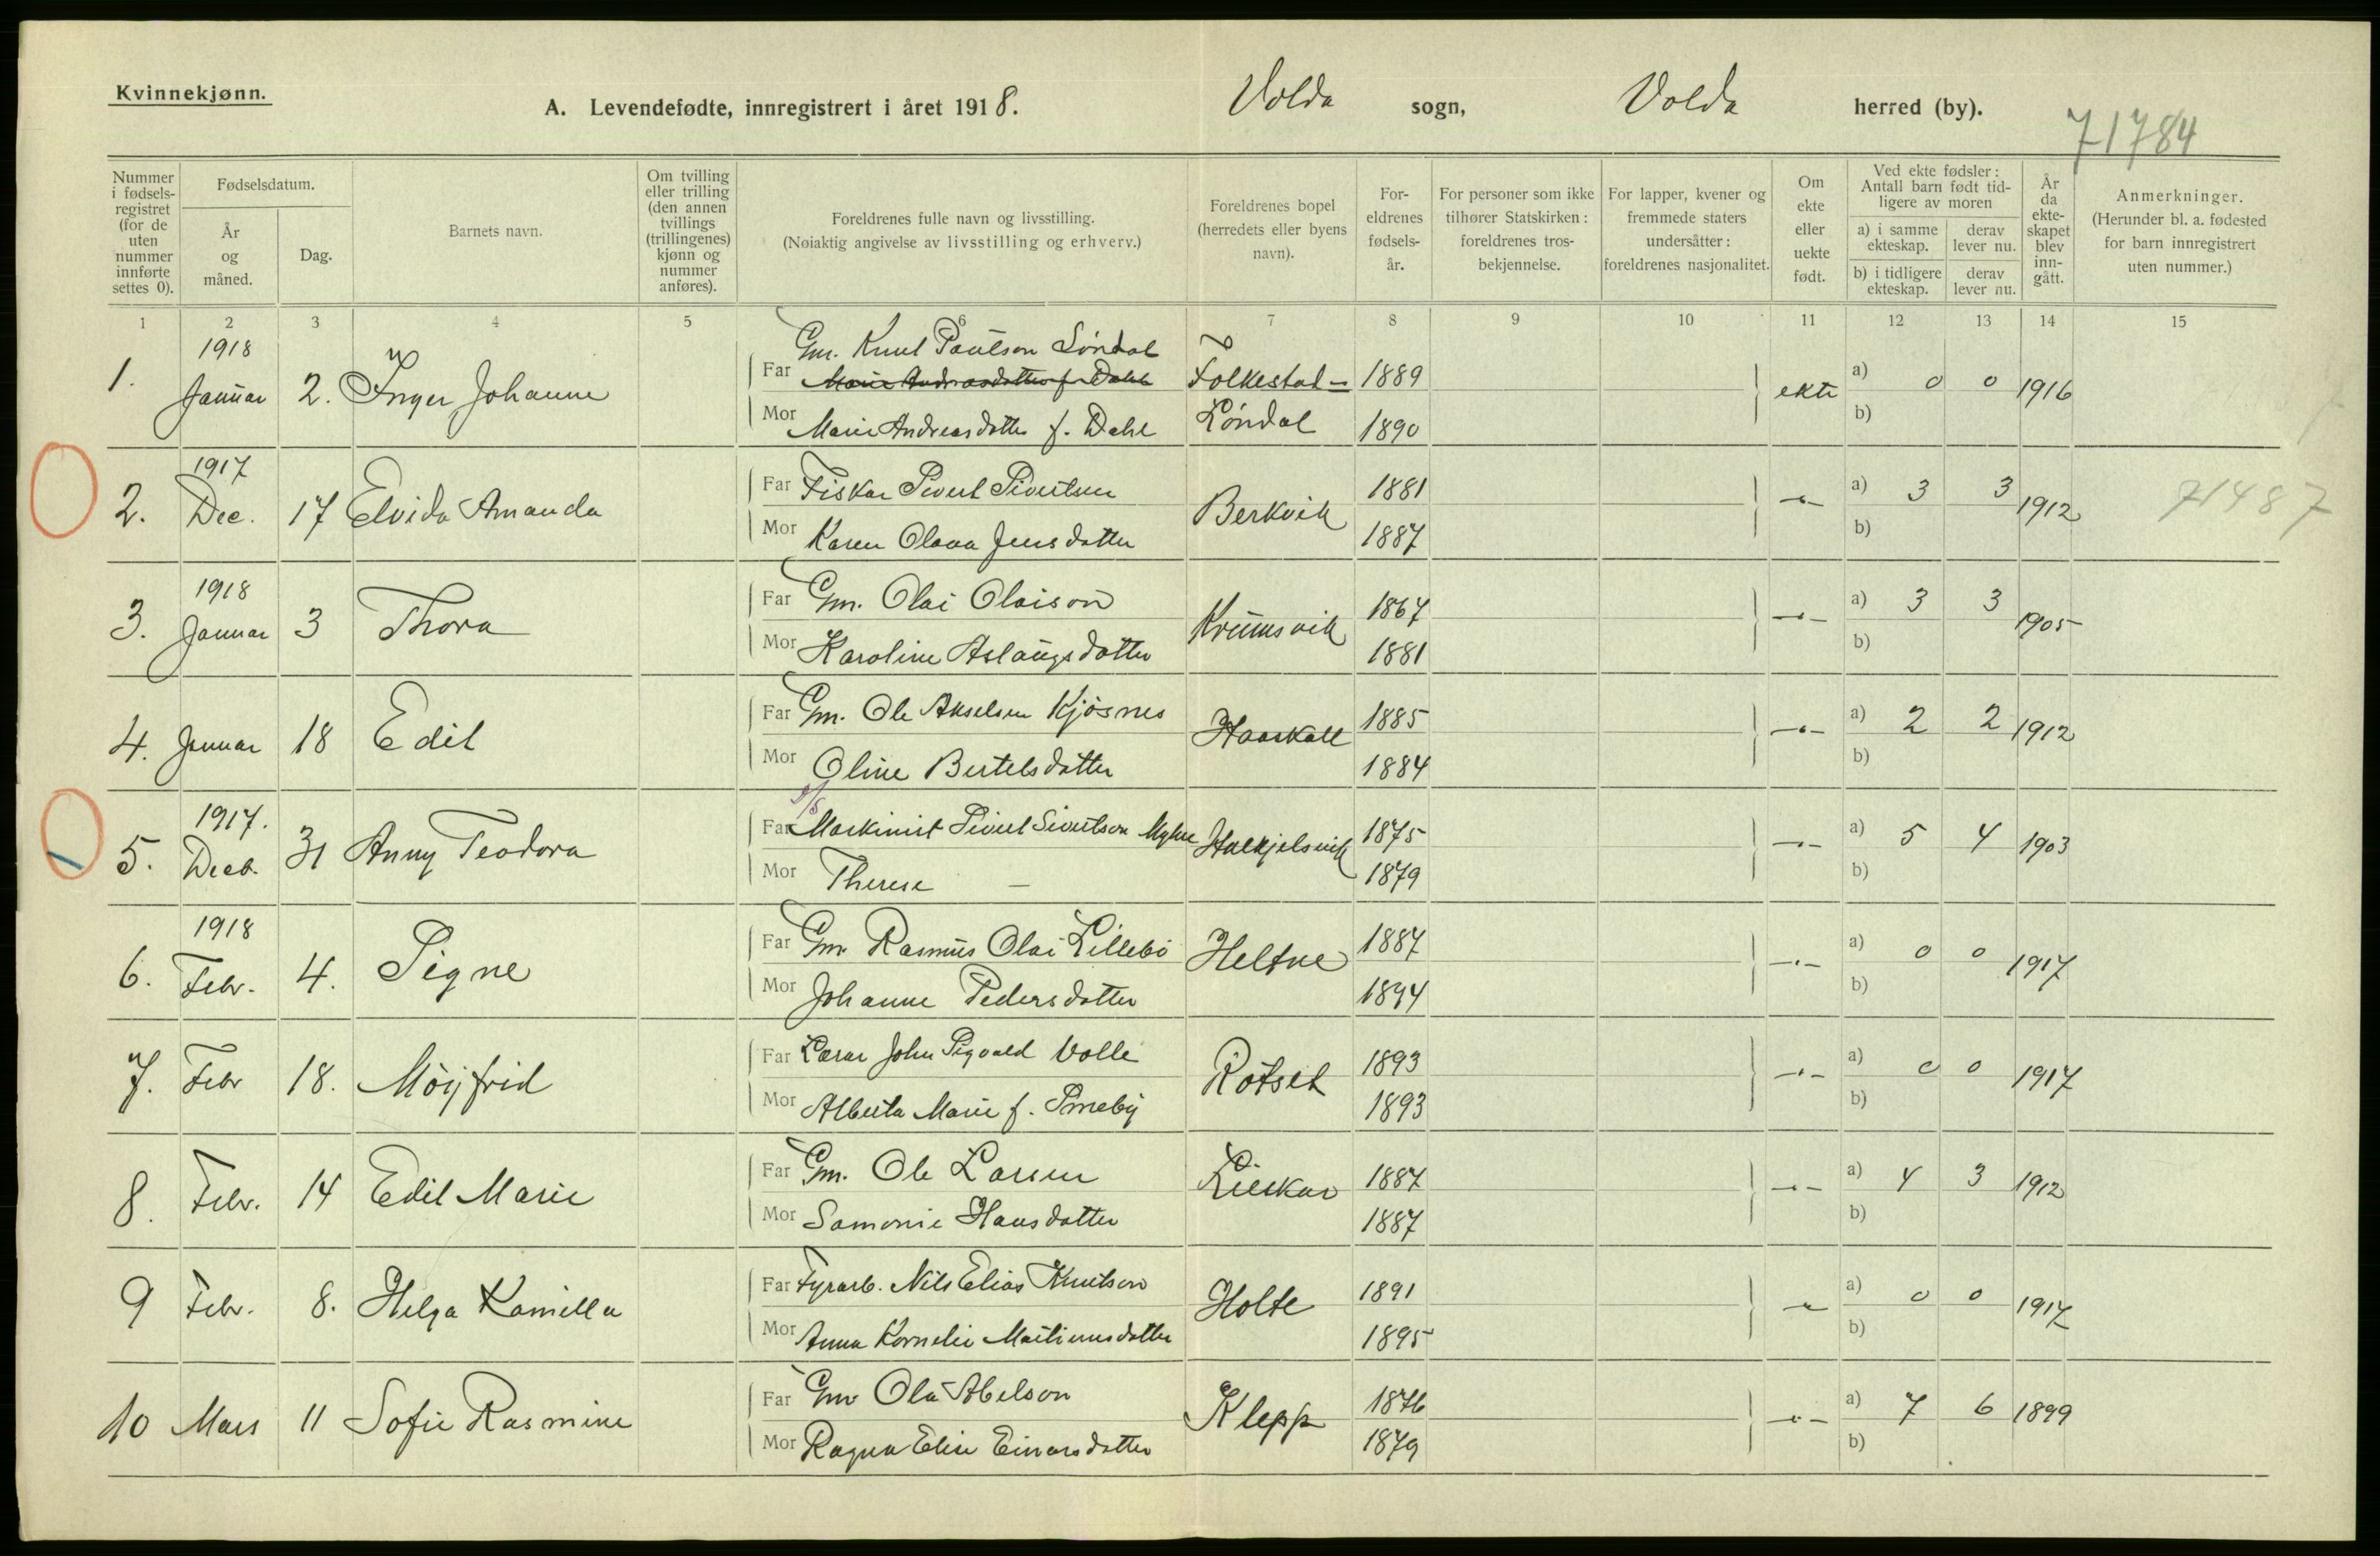 Kvinnekjønn.
A. Levendefødte, innregistrert i året 1918. Volda sogn, Volda herred (by).
71784
Nummer i fødsels-registret (for de uten nummer innførte settes 0).
Fødselsdatum.
År og måned.
Dag.
Barnets navn.
Om tvilling eller trilling (den annen tvillings (trillingenes) kjønn og nummer anføres).
Foreldrenes fulle navn og livsstilling.
(Nøiaktig angivelse av livsstilling og erhverv.)
Foreldrenes bopel (herredets eller byens navn).
For-eldrenes fødsels-år.
For personer som ikke tilhører Statskirken: foreldrenes tros-bekjennelse.
For lapper, kvener og fremmede staters undersåtter: foreldrenes nasjonalitet.
Om ekte eller uekte født.
Ved ekte fødsler: Antall barn født tid-ligere av moren
a) i samme ekteskap.
derav lever nu.
b) i tidligere ekteskap.
derav lever nu.
År da ekte-skapet blev inn-gått.
Anmerkninger.
(Herunder bl. a. fødested for barn innregistrert uten nummer.)
1 2 3 4 5 6 7 8 9 10 11 12 13 14 15
1918
Gm. Knut Paulson Löndal
1. Januar 2. Inger Johanne Far Marie Andreasdatter f. Dahl Folkestad- 1889 ekte a) 0 0 1916
Mor Marie Andreasdatter f. Dahl Löndal 1890 b)
1917
2. Dec. 17 Elvida Amanda Far Fiskar Sivert Sivertsen Berkvik 1881 -"- a) 3 3 1912 71487
Mor Karen Olava Jensdatter 1887 b)
1918
3. Januar 3 Thora Far Gm. Olai Olaison Krumsvik 1867 -"- a) 3 3 1905
Mor Karoline Aslaugsdatter 1881 b)
4. Januar 18 Edit Far Gm. Ole Akselsen Kjösnes Haaskall 1885 -"- a) 2 2 1912
Mor Oline Bertelsdatter 1884 b)
1917.
5. Decb. 31 Anny Teodora Far Maskinist Sivert Sivertson Myhre 1875 -"- a) 5 4 1903
Mor Therese - 1879 b)
1918
6. Febr. 4. Signe Far Gm Rasmus Olai Lillebö Heltne 1887 -"- a) 0 0 1917
Mor Johanne Pedersdatter 1894 b)
7. Febr 18. Möyfrid Far Lærar John Sigvald Volle Rötset 1893 -"- a) 0 0 1917
Mor Alberta Marie f. Smeby 1893 b)
8. Febr. 14 Edit Marie Far Gm. Ole Larsen 1887 -"- a) 4 3 1912
Mor Samonie Hansdatter 1887 b)
9 Febr. 8. Helga Kamilla Far Fyrarb. Nils Elias Knutson Holte 1891 -"- a) 0 0 1917
Mor Anna Kornelie Martinusdatter 1895 b)
10 Mars 11 Sofie Rasmine Far Gm Ola Abelson Klepp 1876 -"- a) 7 6 1899
Mor Ragna Elise Einarsdatter 1879 b)